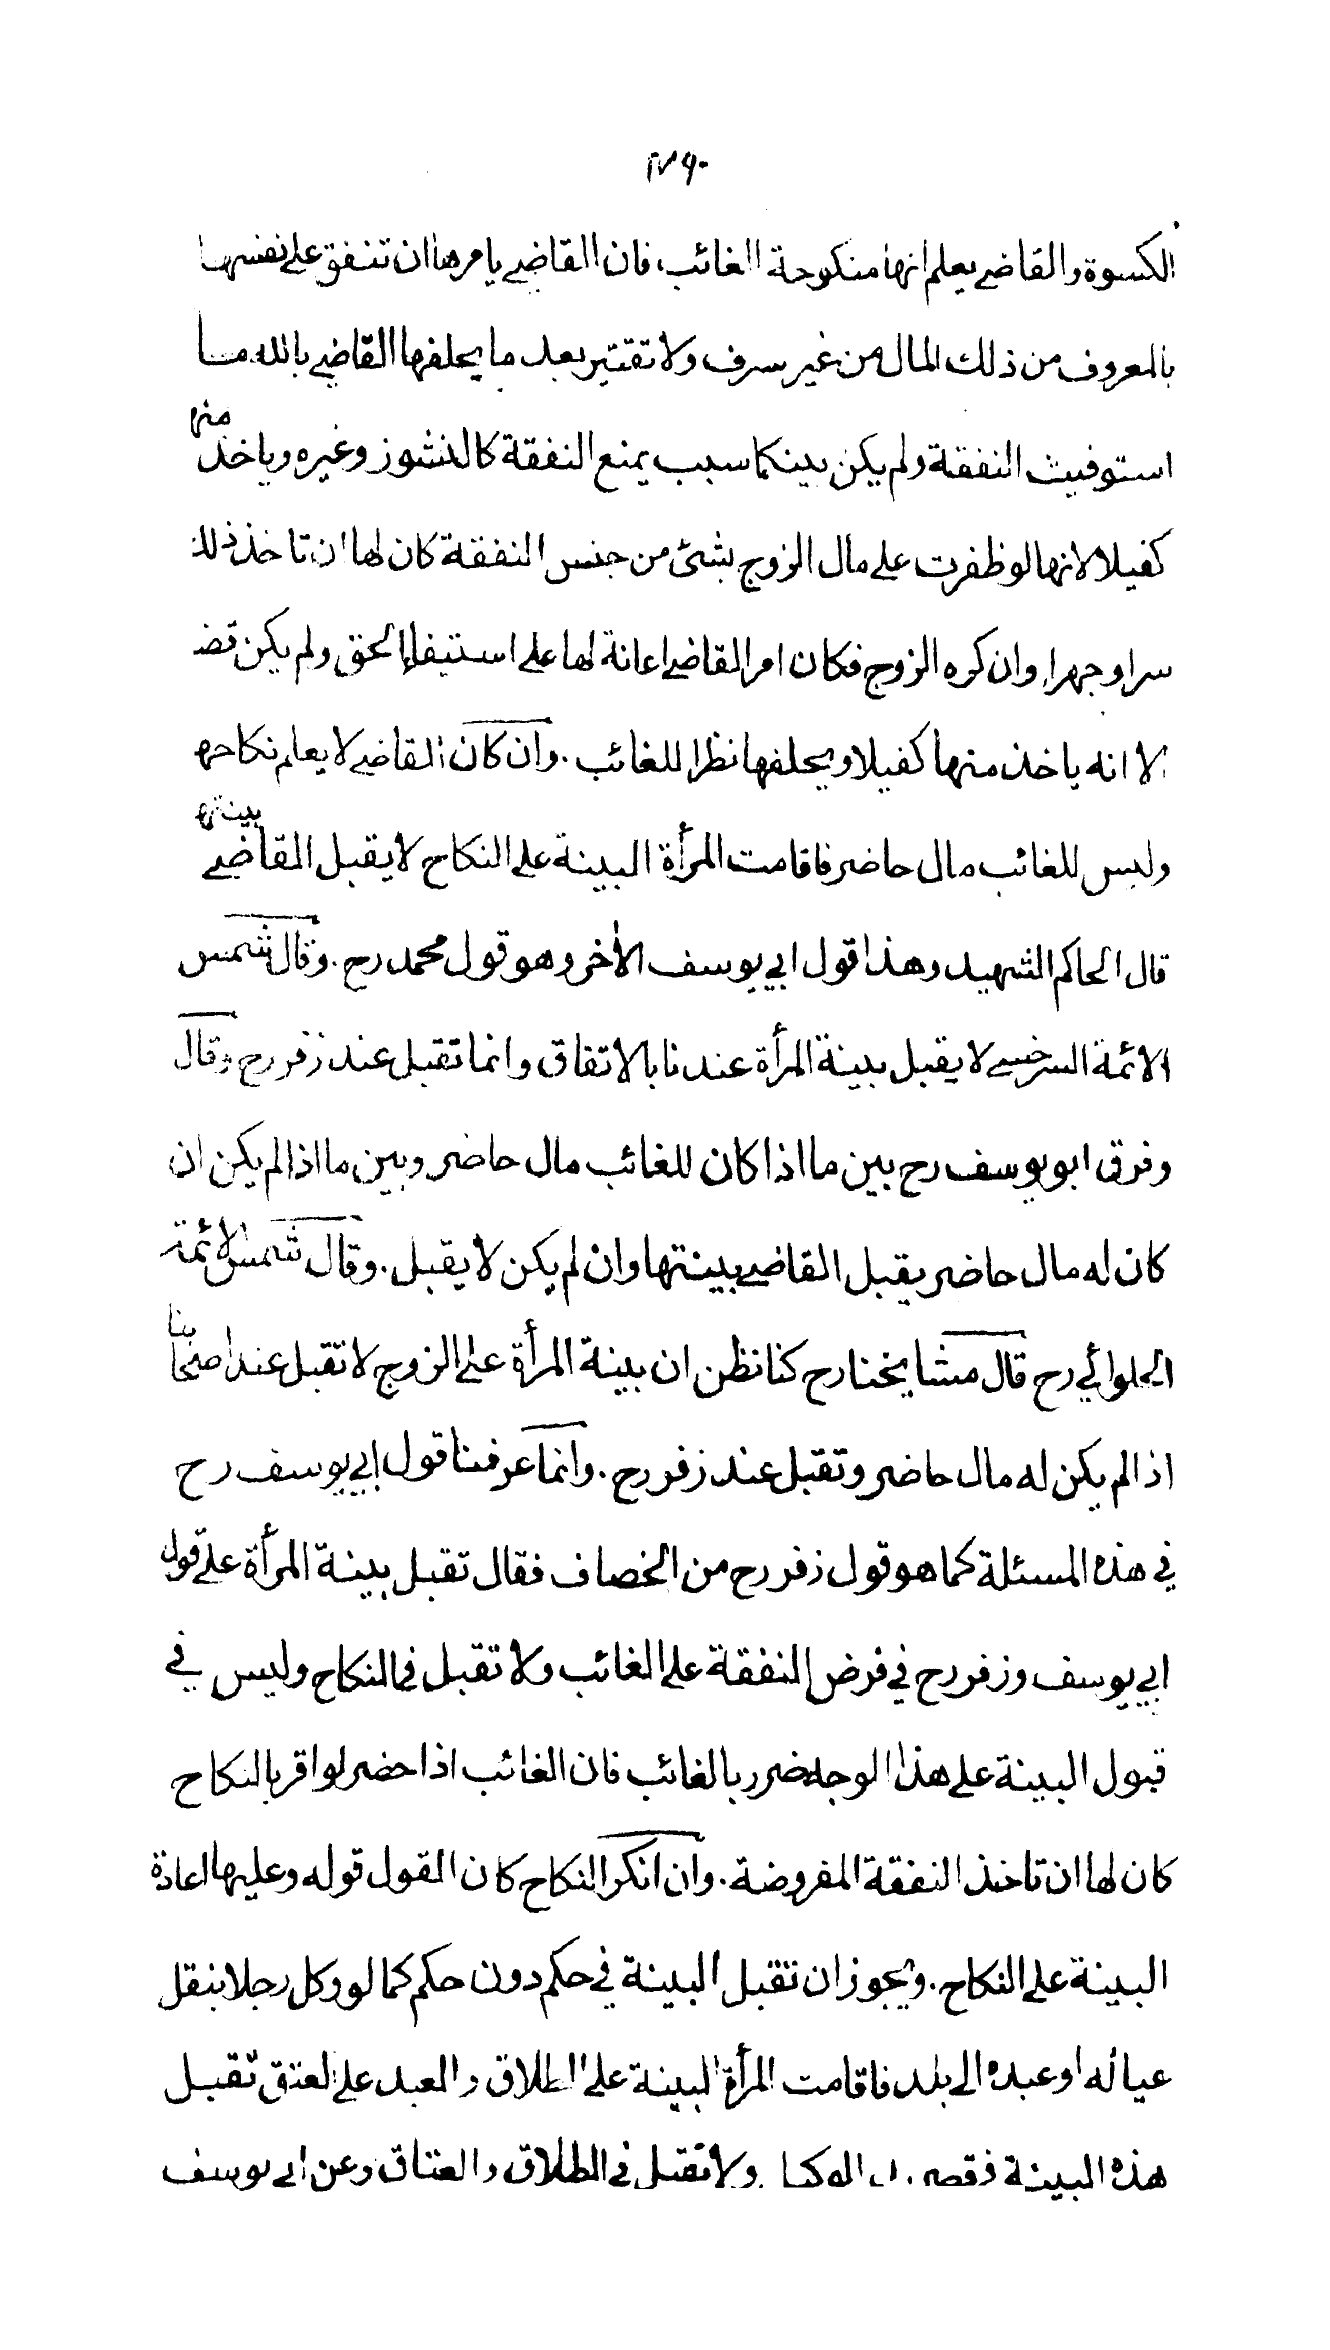 ١٧٦٠
الكسوة والقاضي يعلم انها منكوحة الغائب، فان القاضي يامرها ان تنفق على نفسها
بالمعروف من ذلك المال من غير سرف ولا تقتير بعد ما يحلفها القاضي بالله ما
استوفيت النفقة ولم يكن بينكما سبب يمنع النفقة كالنشوز وغيره وياخذ منها
كفيلا لانها لو ظفرت على مال الزوج بشئ من جنس النفقة كان لها ان تاخذ ذلك
سرا وجهرا، وان كره الزوج فكان امر القاضي اعانة لها على استيفاء الحق ولم يكن قضـ
الا انه ياخذ منها كفيلا ويحلفها نظرا للغائب. وان كان القاضي لا يعلم نكاحها
وليس للغائب مال حاضر فاقامت المرأة البينة على النكاح لا يقبل القاضي بينتها
قال الحاكم الشهيد وهذا قول ابي يوسف الأخر وهو قول محمد رح. وقال شمس
الائمة السرخسي لا يقبل بينة المرأة عندنا بالاتفاق وانما تقبل عند زفر رح وقال
وفرق ابو يوسف رح بين ما اذا كان للغائب مال حاضر وبين ما اذا لم يكن ان
كان له مال حاضر يقبل القاضي بينتها وان لم يكن لا يقبل. وقال شمس الائمة
الحلوائي رح قال مشايخنا رح كنا نظن ان بينة المرأة على الزوج لا تقبل عند اصحابنا
اذا لم يكن له مال حاضر وتقبل عند زفر رح. وانما عرفنا قول ابي يوسف رح
في هذه المسئلة كما هو قول زفر رح من الخصاف فقال تقبل بينة المرأة على قول
ابي يوسف وزفر رح في فرض النفقة على الغائب ولا تقبل في النكاح وليس في
قبول البينة على هذا الوجه ضرر بالغائب فان الغائب اذا حضر لو اقر بالنكاح
كان لها ان تاخذ النفقة المفروضة. وان انكر النكاح كان القول قوله وعليها اعادة
البينة على النكاح. ويجوز ان تقبل البينة في حكم دون حكم كما لو وكل رجلا بنقل
عياله او عبده الى بلد فاقامت المرأة البينة على الطلاق والعبد على العتق تقبل
هذه البينة ولا تقبل في الطلاق والعتاق وعن ابي يوسف